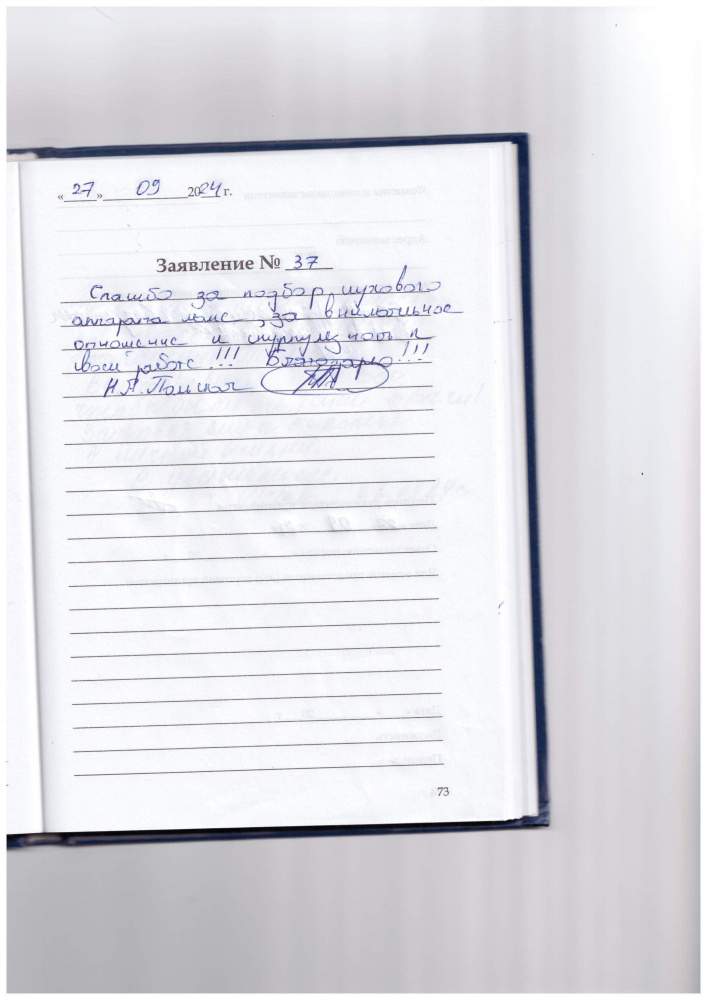 «27» 09 2024 г.
Заявление № 37
Спасибо за подбор слухового
аппарата маме, за внимательное
отношение и скурпулезность к
своей работе!!! Благодарю!!!
Н.А.
73